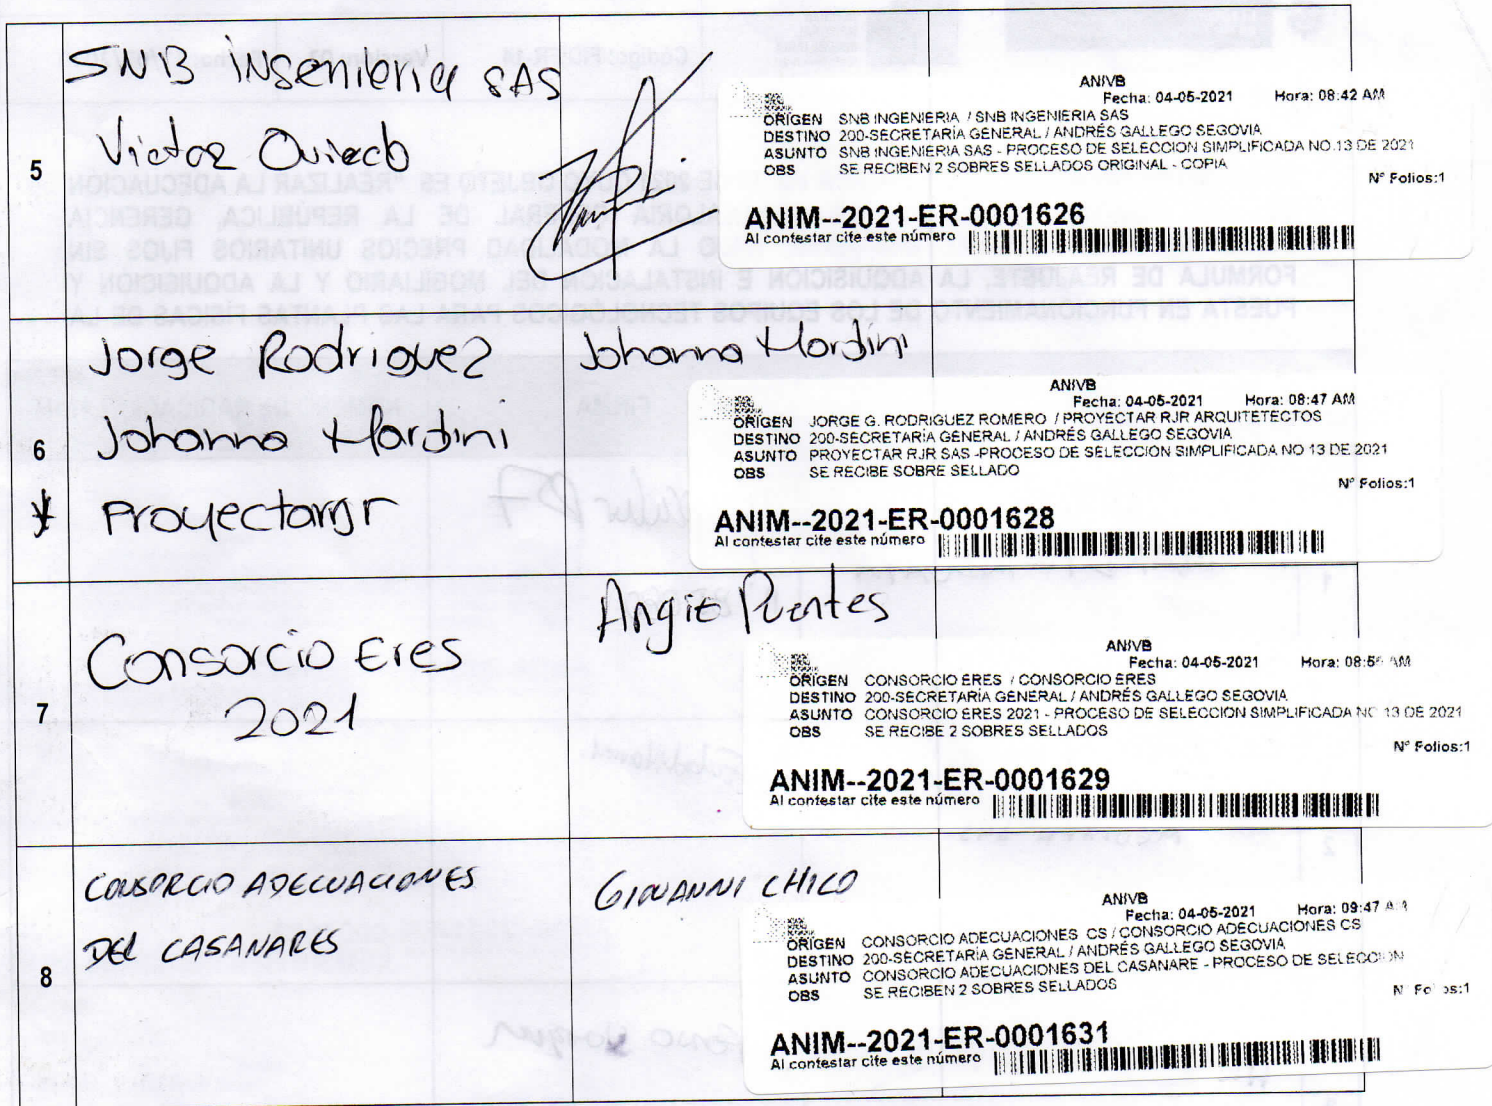 5
SNB ingenieria SAS
Victor Oviedo
ANIVB
Fecha: 04-05-2021 Hora: 08:42 AM
ORIGEN SNB INGENIERIA / SNB INGENIERIA SAS
DESTINO 200-SECRETARÍA GENERAL / ANDRÉS GALLEGO SEGOVIA
ASUNTO SNB INGENIERIA SAS - PROCESO DE SELECCION SIMPLIFICADA NO.13 DE 2021
OBS SE RECIBEN 2 SOBRES SELLADOS ORIGINAL - COPIA
N° Folios:1
ANIM--2021-ER-0001626
Al contestar cite este número
6
Jorge Rodriguez
Johanna Mardini
Proyectarrjr
Johanna Mardini
ANIVB
Fecha: 04-05-2021 Hora: 08:47 AM
ORIGEN JORGE G. RODRIGUEZ ROMERO / PROYECTAR RJR ARQUITETECTOS
DESTINO 200-SECRETARÍA GENERAL / ANDRÉS GALLEGO SEGOVIA
ASUNTO PROYECTAR RJR SAS -PROCESO DE SELECCION SIMPLIFICADA NO 13 DE 2021
OBS SE RECIBE SOBRE SELLADO
N° Folios:1
ANIM--2021-ER-0001628
Al contestar cite este número
7
Consorcio Eres
2021
Angie Puentes
ANIVB
Fecha: 04-05-2021 Hora: AM
ORIGEN CONSORCIO ERES / CONSORCIO ERES
DESTINO 200-SECRETARÍA GENERAL / ANDRÉS GALLEGO SEGOVIA
ASUNTO CONSORCIO ERES 2021 - PROCESO DE SELECCION SIMPLIFICADA NO 13 DE 2021
OBS SE RECIBE 2 SOBRES SELLADOS
N° Folios:1
ANIM--2021-ER-0001629
Al contestar cite este número
8
CONSORCIO ADECUACIONES
DEL CASANARES
GIOVANNI CHICO
ANIVB
Fecha: 04-05-2021 Hora: 09:47 AM
ORIGEN CONSORCIO ADECUACIONES CS / CONSORCIO ADECUACIONES CS
DESTINO 200-SECRETARÍA GENERAL / ANDRÉS GALLEGO SEGOVIA
ASUNTO CONSORCIO ADECUACIONES DEL CASANARE - PROCESO DE SELECCION
OBS SE RECIBEN 2 SOBRES SELLADOS
N° Folios:1
ANIM--2021-ER-0001631
Al contestar cite este número